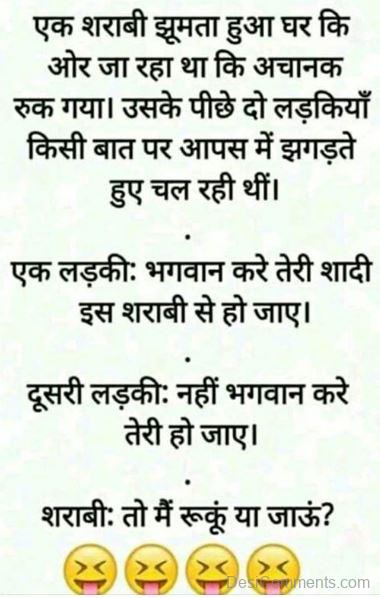 एक शराबी झूमता हुआ घर कि
ओर जा रहा था कि अचानक
रुक गया। उसके पीछे दो लड़कियाँ
किसी बात पर आपस में झगड़ते
हुए चल रही थीं।
.
एक लड़की: भगवान करे तेरी शादी
इस शराबी से हो जाए।
.
दूसरी लड़की: नहीं भगवान करे
तेरी हो जाए।
.
शराबी: तो मैं रूकूं या जाऊं?
DesiComments.com